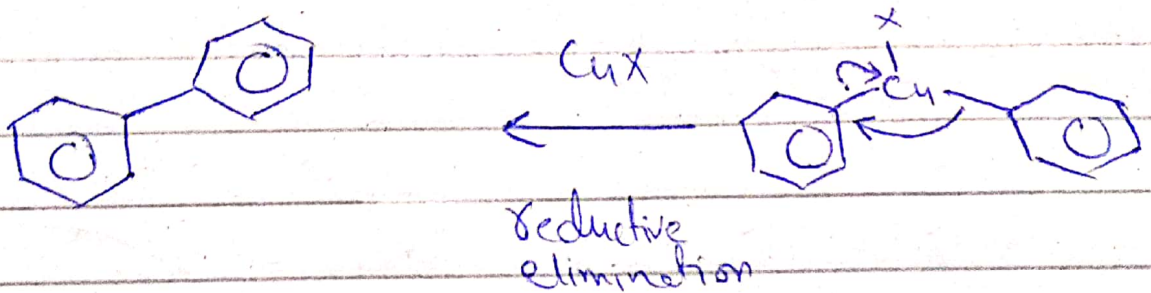 X
CuX
Cu
reductive
elimination